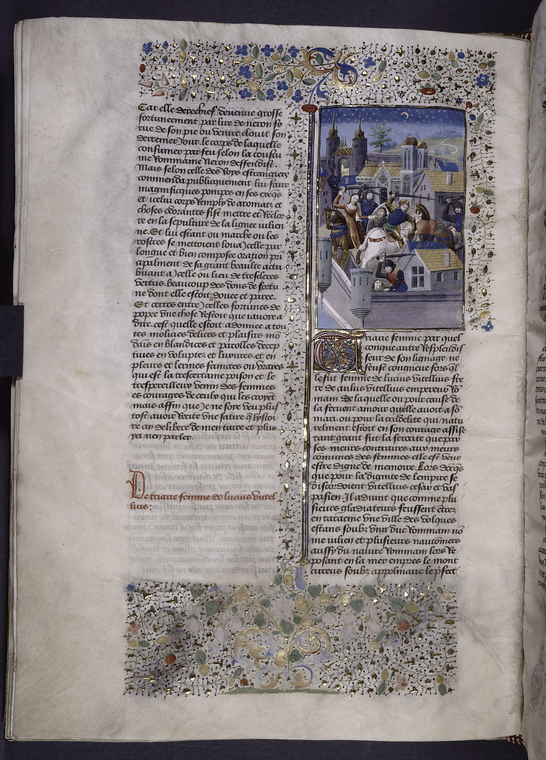 Car elle derechief devenue grosse
fortuneement par lire de neron fe
rue de son pie ou ventre elout son
derrenier Jour le corps de laquelle
consumer par feu selon la coustu
me Rommaine Neron deffendist.
Mais selon celle des Roys estrangiers
commenda publiquement lui faire
magnifiques pompes en ses exeq
et icelui corps remply de aromatz et
choses odorantes fist mettre et
re en la sepulture de la ligne iulien
ne. Et lui estant ou marche ou les
rostres se mettoient loua celle par
longue et bien composee oraison prin
cipalment de sa grant beaulte attri
buant a celle ou lieu de trescleres
vertus, beaucoup des dons de fortu
ne dont elle estoit douee et paree.
Et certes entre celles fortunes de
popee une chose Restoit que iauoie a
dire. cest quelle estoit adonnee a tou
tes molices delices et plusieurs mo
en blandices et parolles decep
tiues en voluptez et luxures et en
pleurs et lermes fainctes ou vrayes
qui est la trescertaine poison et le
tresperilleux venin des femmes
es courages de ceulx qui les croyent
mais affin que Je ne soye veu plus
tost auoir escrit une satire
re ay delibere de men taire et plus
nen parler.
De triaire femme de lucius vitel
lius:
Triaire femme par quel
conque autre Resplendis
seur de son lignage ne
feust congneue fors
le fut femme de lucius vitellius fre
re de aulus vitellius empereur Ro
main de laquelle ou pour cause de
la fervent amour quelle auoit a so
mari ou pour la crudelite qui natu
relment estoit en son courage assise
tant grant fut la ferocite que par
ses meurs contraires aux meurs
communes des femmes elle est veue
estre digne de memoire. Lors doncqs
que pour la dignite de lempire se
discordoient vitellius cesar et vas
pasien. Il aduint que comme plu
sieurs gladiateurs feussent entrez
en taracine une ville des volsques
estans soubz ung duc Rommain no
me iulien et plusieurs nautonniers
aussy du nauire Rommain lors Re
posant en la mer empres le mont
soubz appolinaire le prefect